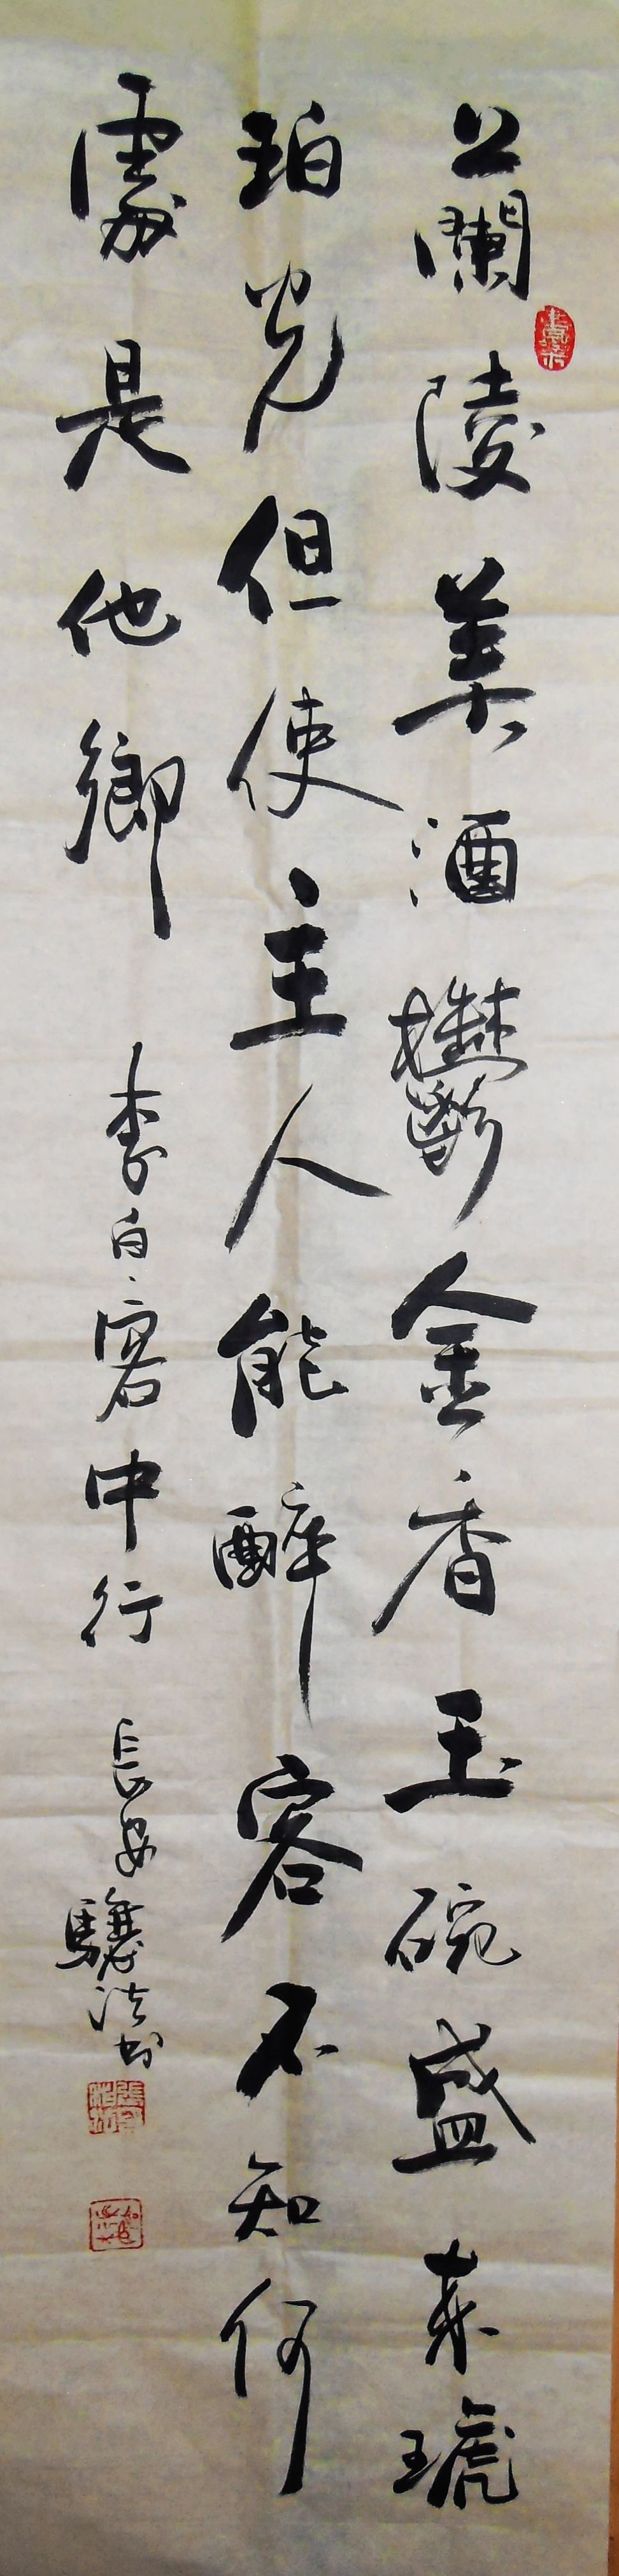 蘭陵美酒鬱金香玉碗盛來琥
珀光但使主人能醉客不知何
處是他鄉 李白客中行 長安驥法書